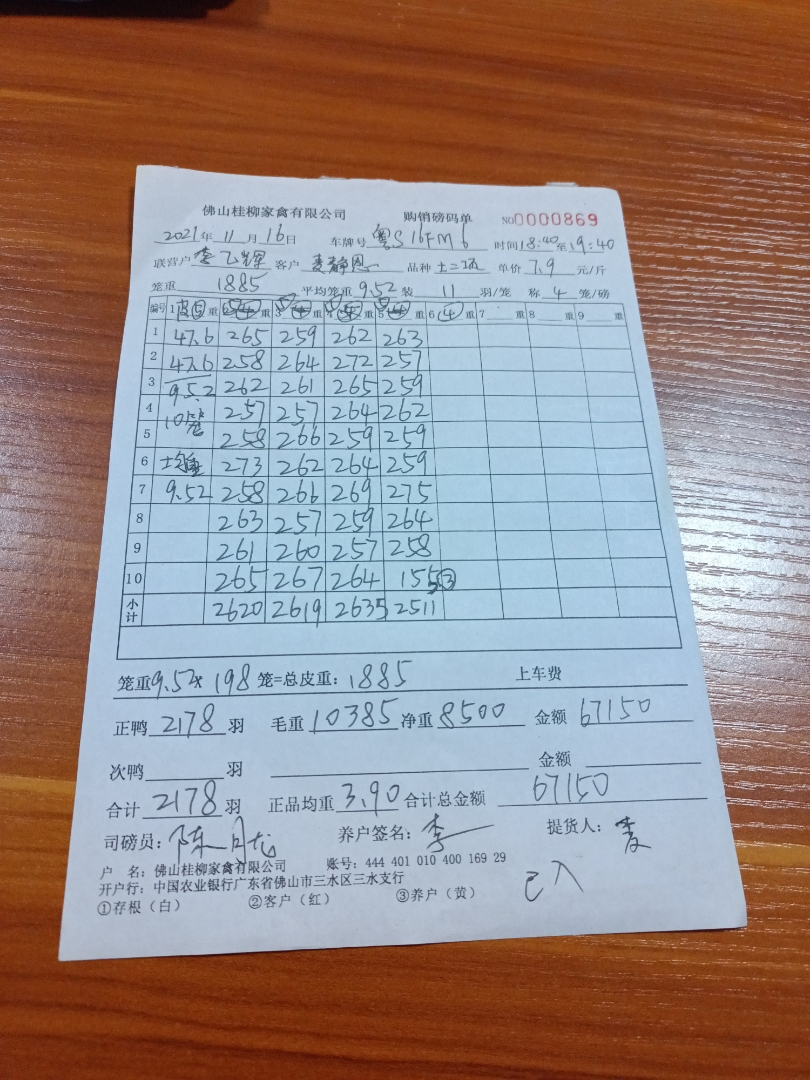 佛山桂柳家禽有限公司 购销磅码单 NO0000869
2021年 11月 16日 车牌号 粤S16FM6 时间18:40至19:40
联营户 李飞辉 客户 麦静恩 品种 土二 单价 7.9 元/斤
笼重 1885 平均笼重 9.52 装 11 羽/笼 称 4 笼/磅
编号 1 皮 重 2 重 3 重 4 重 5 重 6 ④ 重 7 重 8 重 9 重
1 47.6 265 259 262 263
2 47.6 258 264 272 257
3 95.2 262 261 265 259
4 10笼 257 257 264 262
5 258 266 259 259
6 273 262 264 259
7 9.52 258 266 269 275
8 263 257 259 264
9 261 260 257 258
10 265 267 264 155 ③
小计 2620 2619 2635 2511
笼重9.52× 198 笼=总皮重: 1885 上车费
正鸭 2178 羽 毛重 10385 净重 8500 金额 67150
次鸭 羽 金额
合计 2178 羽 正品均重 3.90 合计总金额 67150
司磅员: 陈月龙 养户签名: 李 提货人: 麦
户 名: 佛山桂柳家禽有限公司 账号: 444 401 010 400 169 29
开户行: 中国农业银行广东省佛山市三水区三水支行
已入
①存根（白） ②客户（红） ③养户（黄）